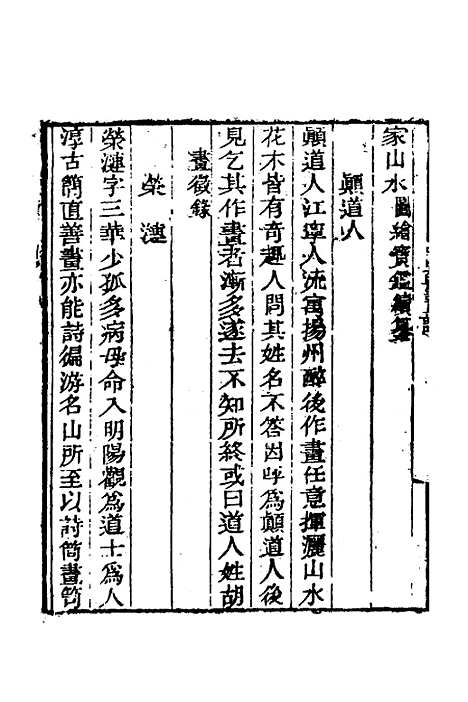 家山水圖繪寶鑑續纂
顚道人
顚道人江寧人流寓揚州醉後作畫任意揮灑山水
花木皆有奇趣人問其姓名不答因呼爲顚道人後
見乞其作畫者漸多遂去不知所終或曰道人姓胡
畫徵錄
榮漣
榮漣字三華少孤多病母命入明陽觀爲道士爲人
淳古簡直善畫亦能詩徧游名山所至以詩筒畫笥